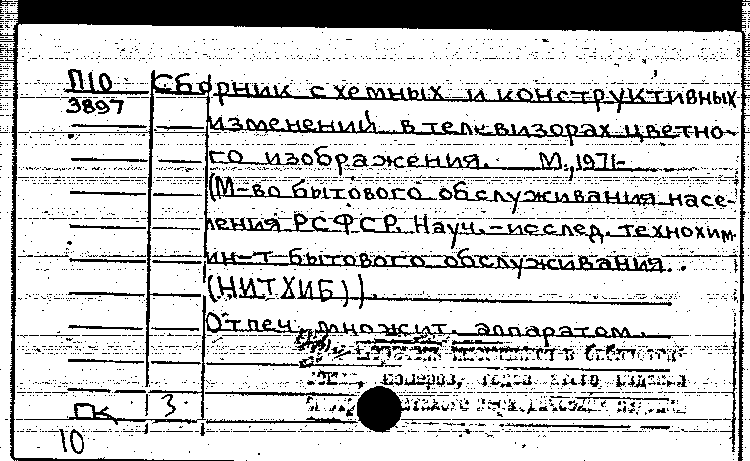 П10 Сборник схемных и конструктивных
3897 изменений в телевизорах цветно-
го изображения. М., 1971-
(М-во бытового обслуживания насе-
ления РСФСР. Науч.-исслед. технохим.
ин-т бытового обслуживания.
(НИТХИБ)).
Отпеч. множит. аппаратом.
ПК 3
10